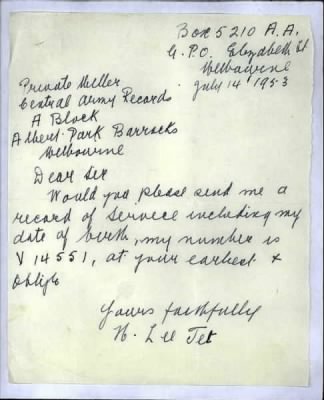 Box 5210 A.A.
G.P.O. Elizabeth St
Melbourne
July 14 1953
Private Miller
Central Army Records
A Block
Albert Park Barracks
Melbourne
Dear Sir
Would you please send me a
record of service including my
date of birth, my number is
V 14551, at your earliest &
oblige
Yours faithfully
Lee Tet